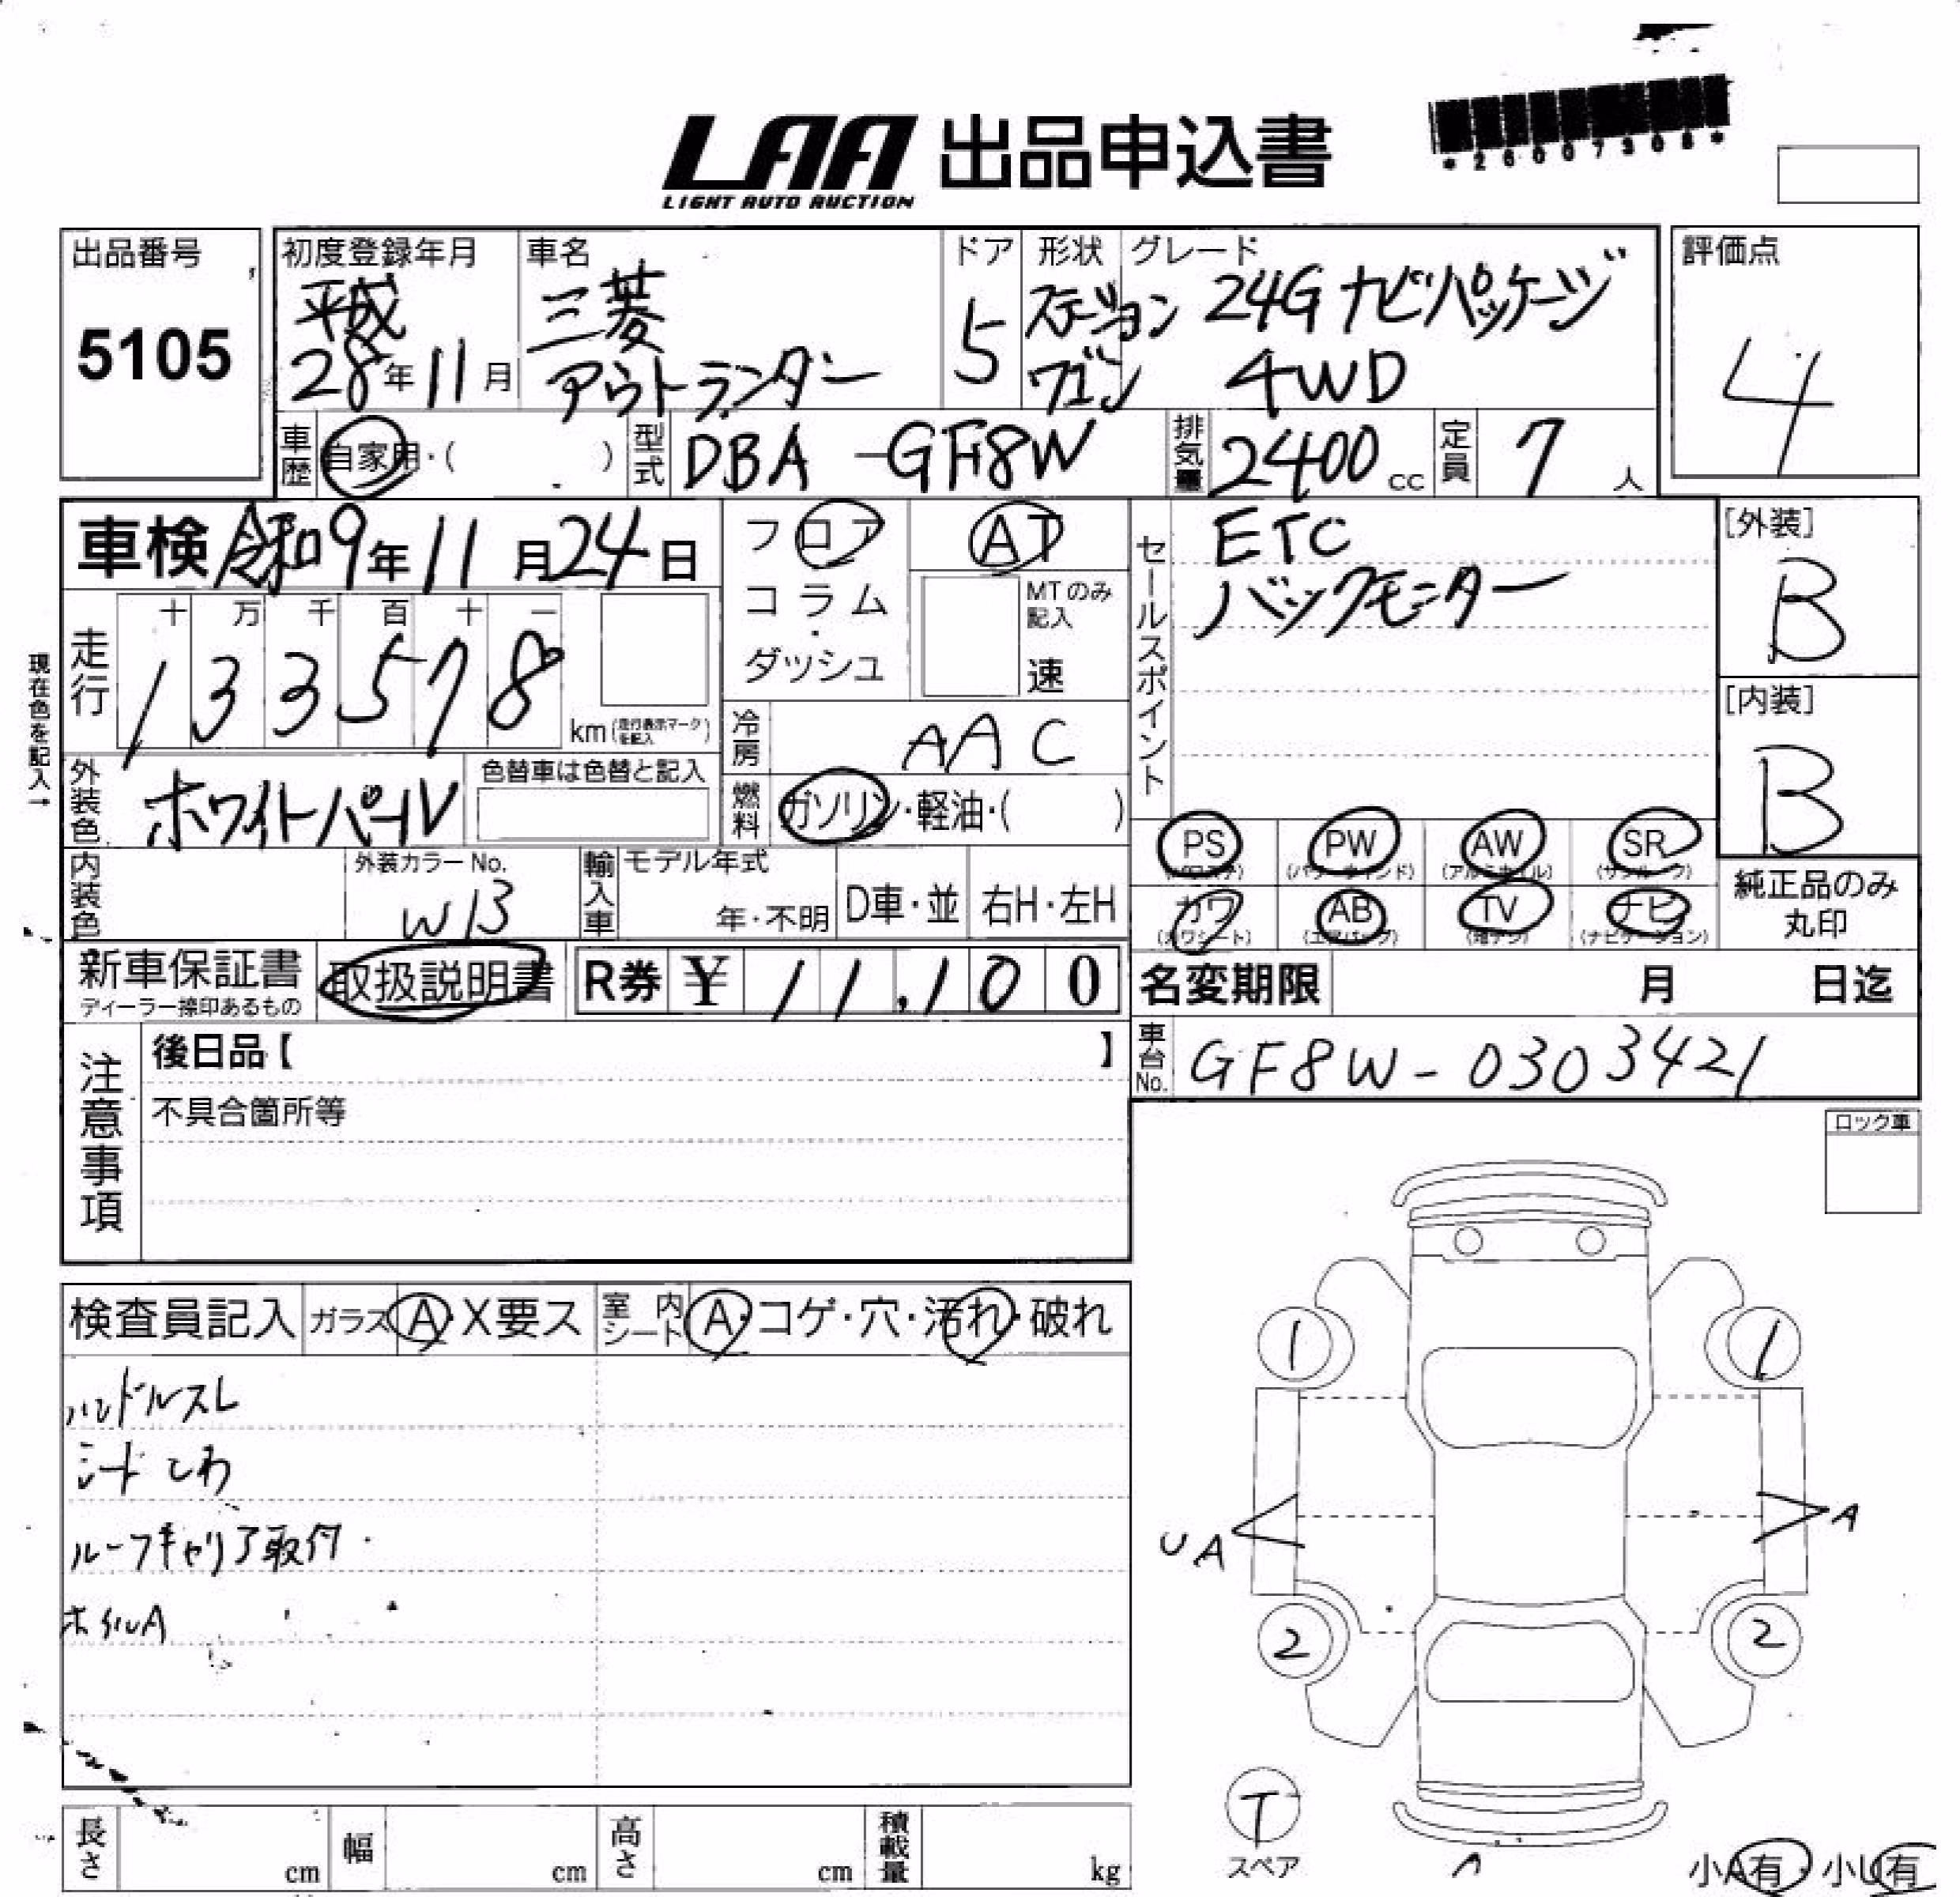 LAA 出品申込書
LIGHT AUTO AUCTION
*26007308*
出品番号
5105
初度登録年月
平成
28年11月
車名
三菱
アウトランダー
ドア
5
形状
ステーション
ワゴン
グレード
24G ナビパッケージ
4WD
評価点
4
車歴 自家用・( )
型式 DBA-GF8W
排気量 2400 cc
定員 7 人
車検 令和9年11月24日
フロア
コラム
・
ダッシュ
AT
MTのみ
記入
速
セールスポイント
ETC
バックモニター
[外装]
B
[内装]
B
現在色を記入→
走行
十 万 千 百 十 一
1 3 3 5 7 8
km(走行表示マーク
を記入)
冷房 AAC
外装色 ホワイトパール
色替車は色替と記入
燃料 ガソリン・軽油・( )
PS PW AW SR
(パワステ) (パワーウィンド) (アルミホイル) (サンルーフ)
カワ AB TV ナビ
(カワシート) (エアバッグ) (地デジ) (ナビゲーション)
純正品のみ
丸印
内装色
外装カラーNo.
W13
輸入車
モデル年式
年・不明
D車・並
右H・左H
新車保証書
ディーラー捺印あるもの
取扱説明書
R券 ¥ 11,100
名変期限 月 日迄
車台No. GF8W-0303421
注意事項
後日品【 】
不具合箇所等
ロック車
検査員記入 ガラス A・X要ス 室内シート A・コゲ・穴・汚れ・破れ
ハンドルスレ
シートしわ
ルーフキャリア取付
ホイルA
1 1
UA A
2 2
T
スペア
小A有・小U有
長さ cm 幅 cm 高さ cm 積載量 kg